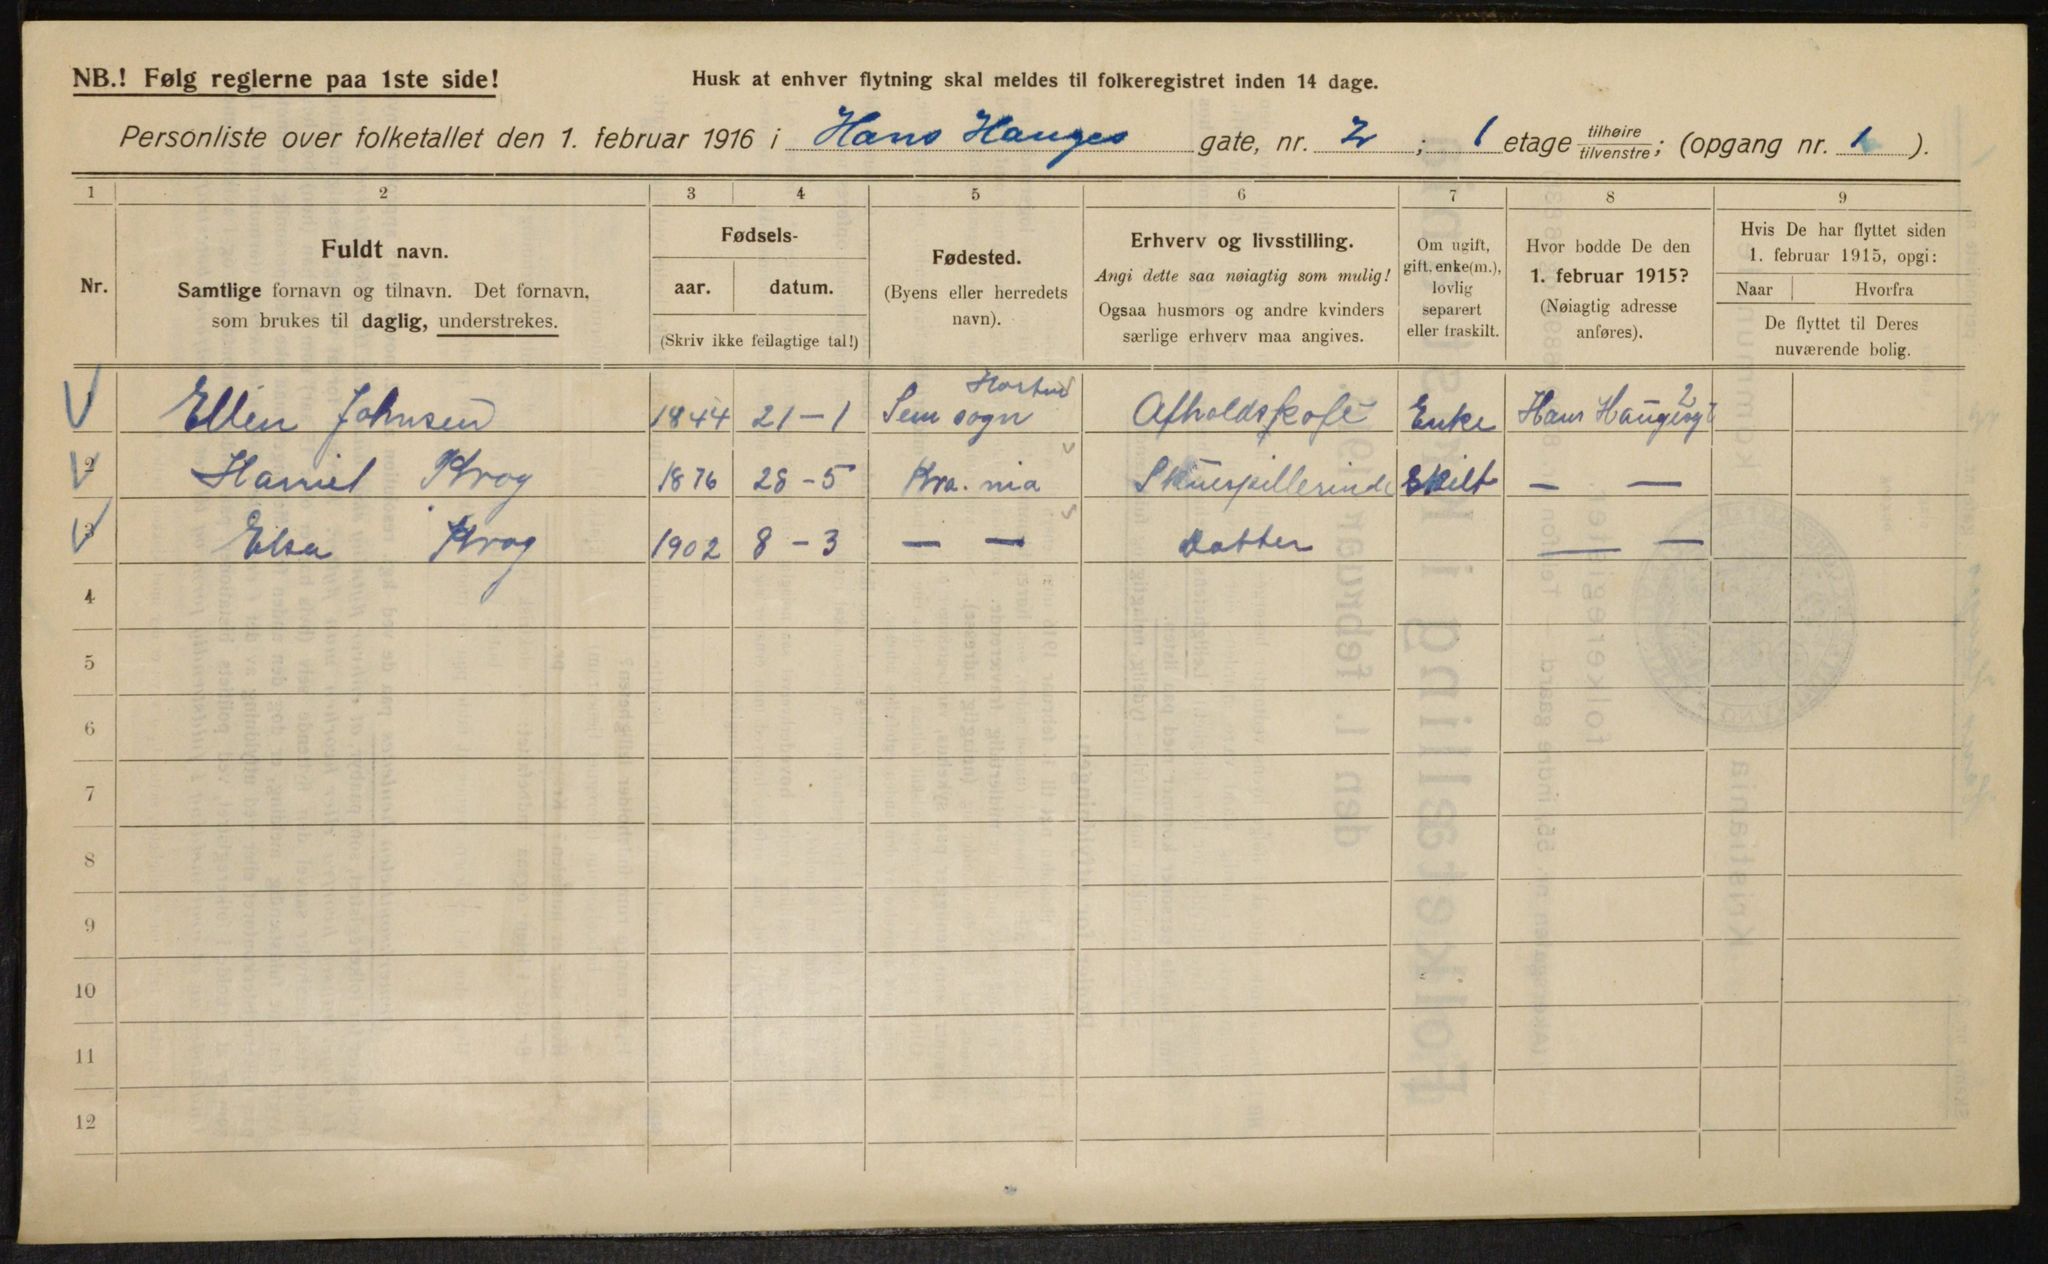 NB.! Følg reglerne paa 1ste side!
Husk at enhver flytning skal meldes til folkeregistret inden 14 dage.
Personliste over folketallet den 1. februar 1916 i Hans Hauges gate, nr. 2 ; 1 etage tilhøire tilvenstre; (opgang nr. 1 ).
1 2 3 4 5 6 7 8 9
Nr.
Fuldt navn.
Samtlige fornavn og tilnavn. Det fornavn,
som brukes til daglig, understrekes.
Fødsels-
aar. datum.
(Skriv ikke feilagtige tal!)
Fødested.
(Byens eller herredets
navn).
Erhverv og livsstilling.
Angi dette saa nøiagtig som mulig!
Ogsaa husmors og andre kvinders
særlige erhverv maa angives.
Om ugift,
gift, enke(m.),
lovlig
separert
eller fraskilt.
Hvor bodde De den
1. februar 1915?
(Nøiagtig adresse
anføres).
Hvis De har flyttet siden
1. februar 1915, opgi:
Naar Hvorfra
De flyttet til Deres
nuværende bolig.
1 Ellen Johnsen 1844 21-1 Sem sogn Afholdskafe Enke Hans Haugesgt 2
2 Krog 1876 28-5 Kra.nia Skuespillerinde Skilt — —
3 Elsa Krog 1902 8-3 — — Datter — —
4
5
6
7
8
9
10
11
12